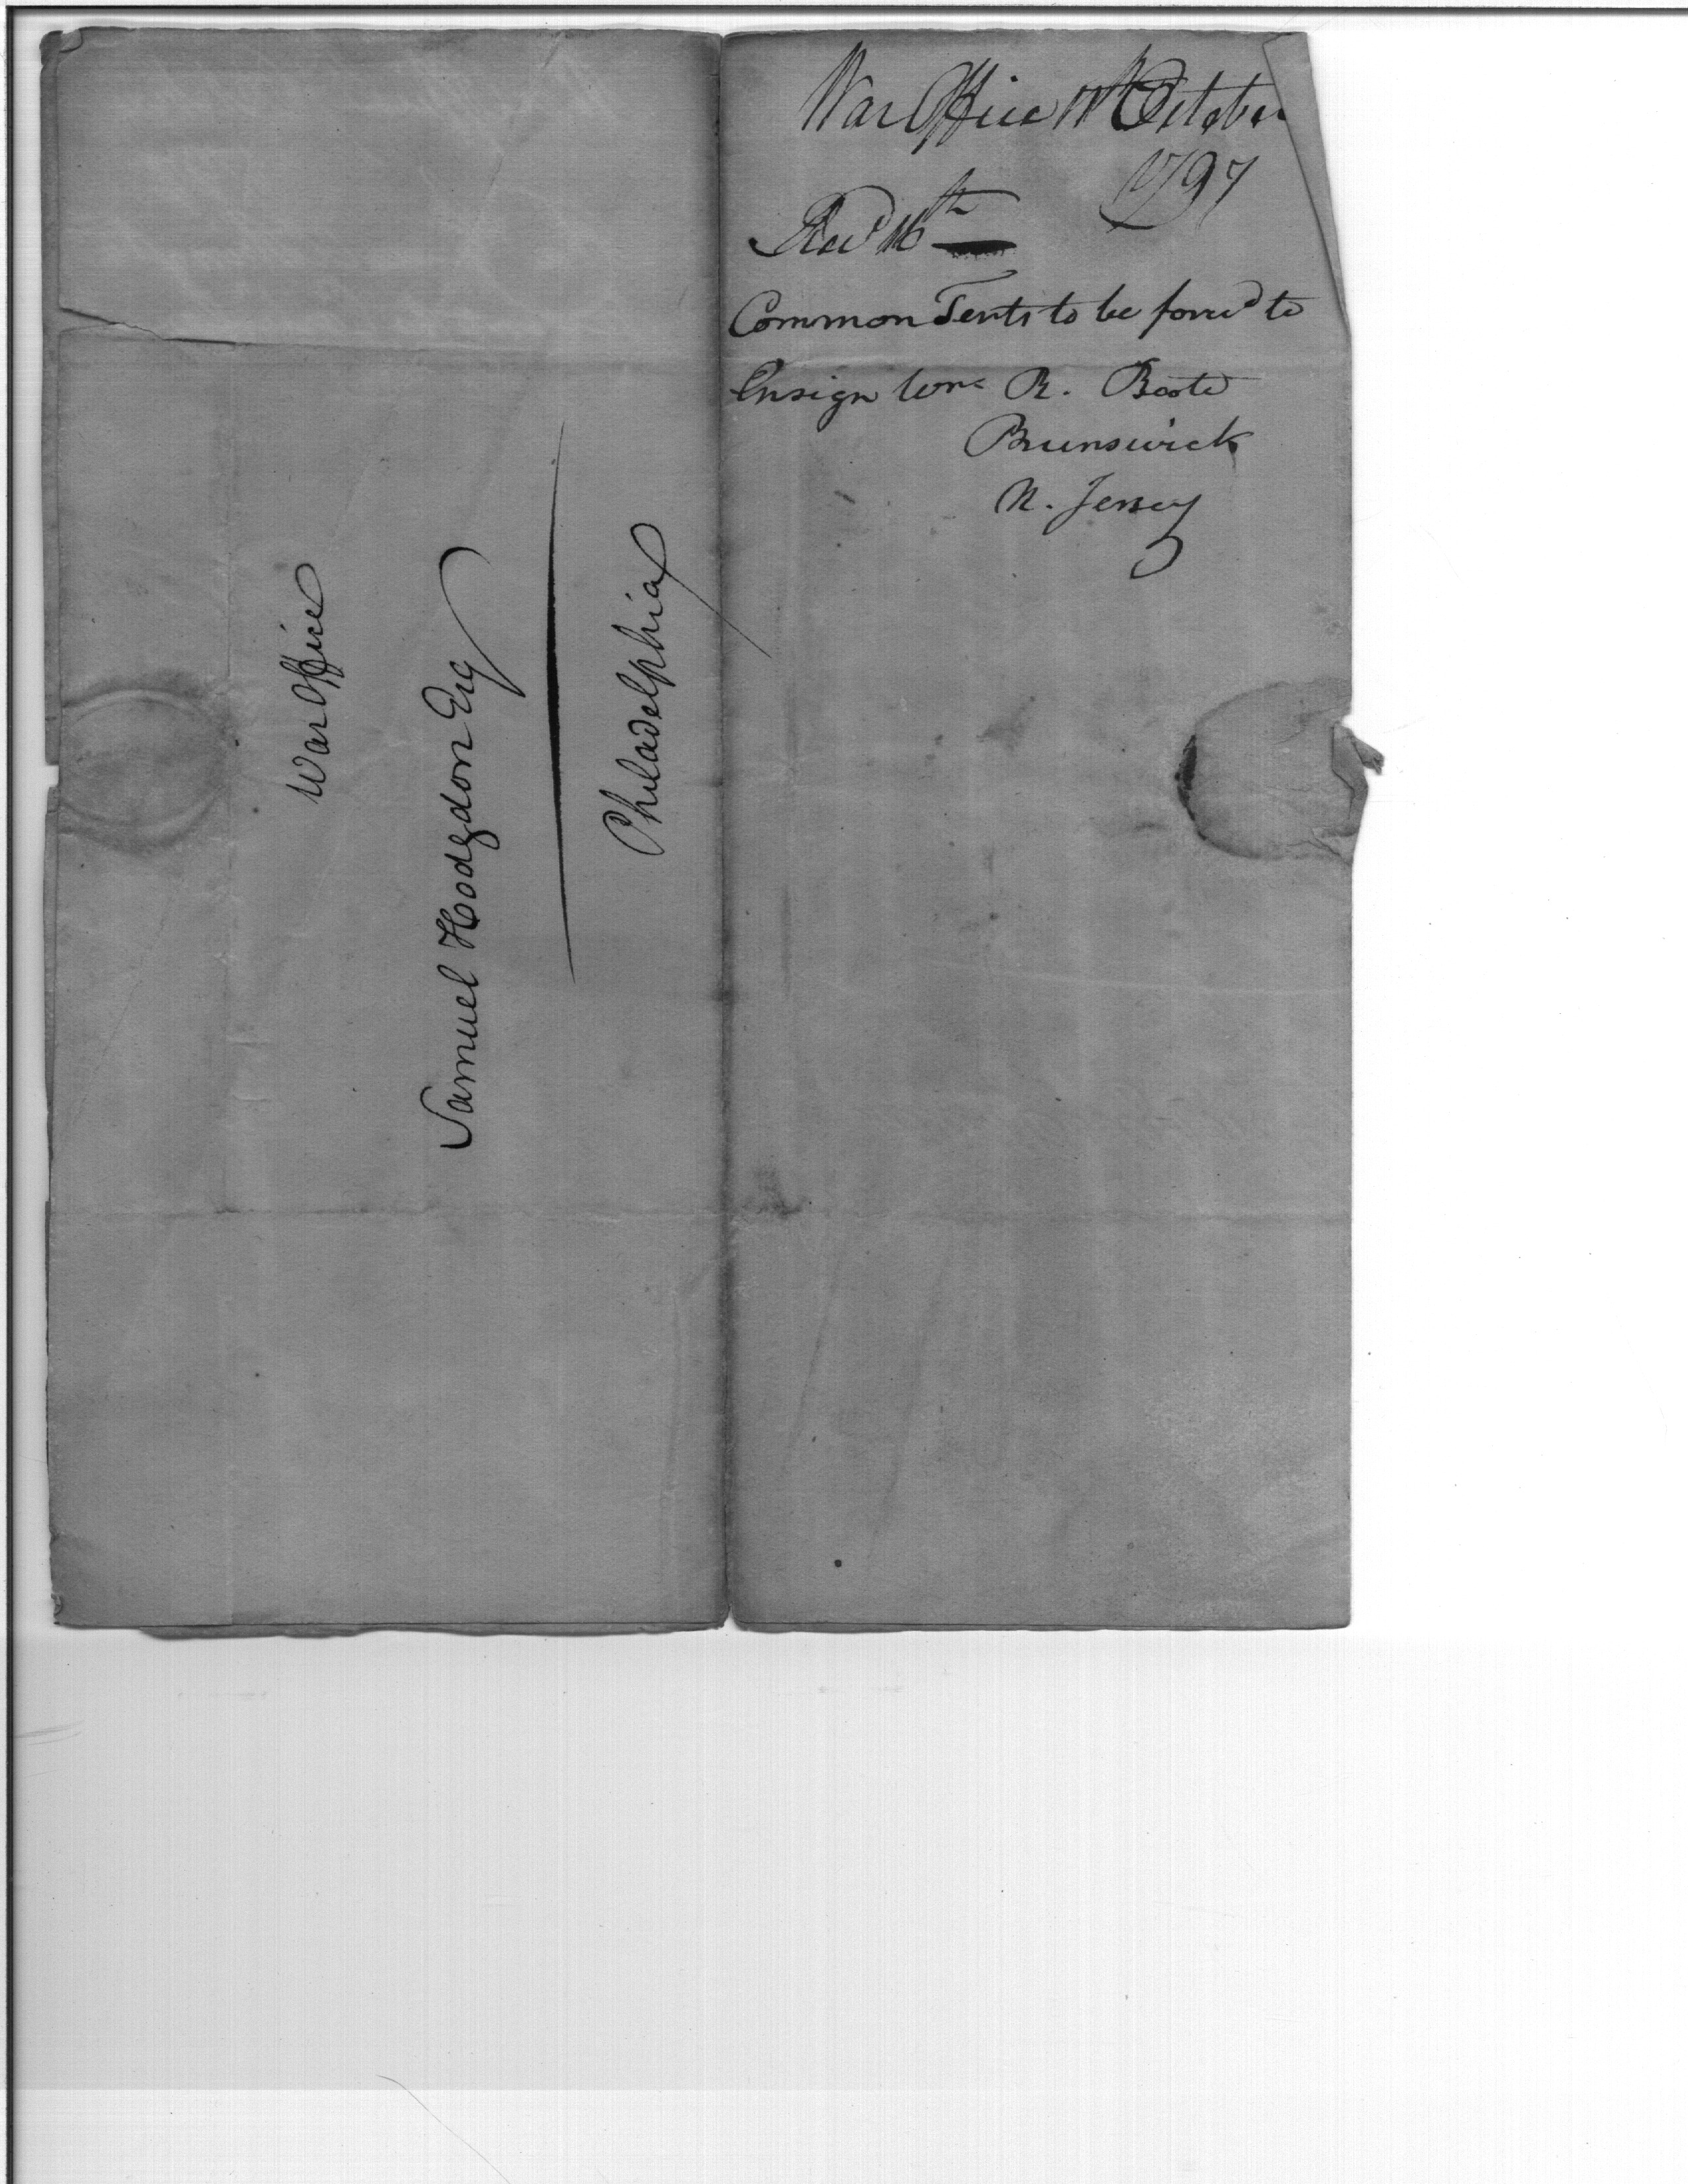 War Office
Samuel Hodgdon Esq
Philadelphia
War Office October
1797
Recd 16th
Common Tents to be forwd to
Ensign Wm R. Boote
Brunswick
N. Jersey